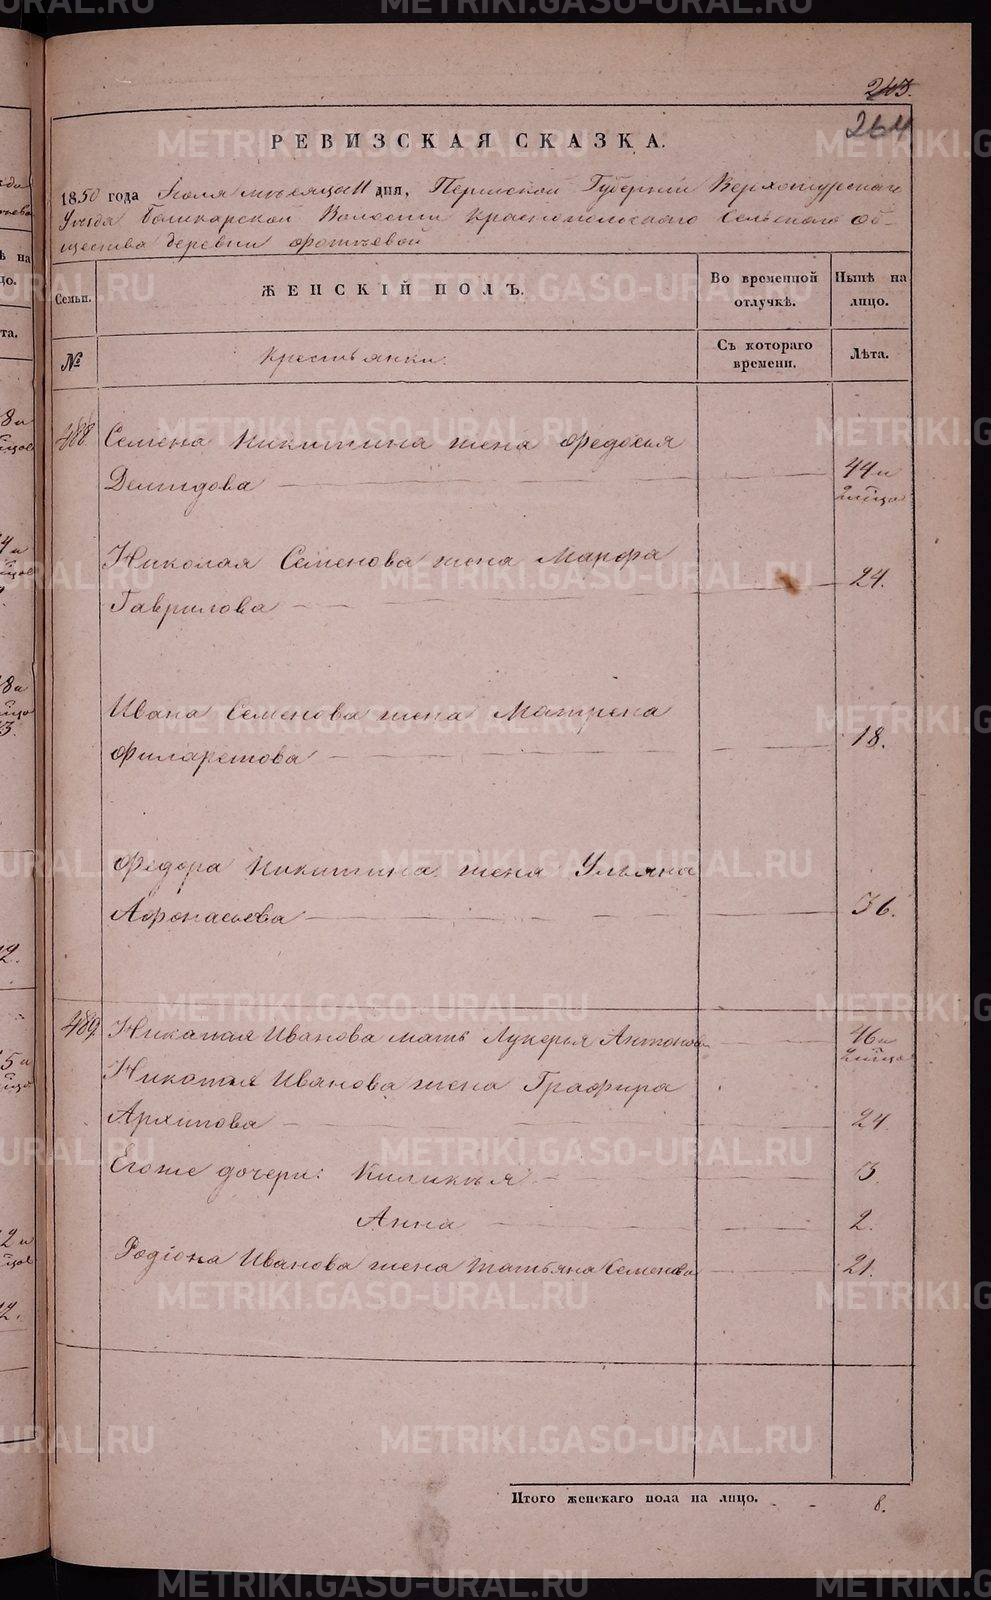 243.
264
РЕВИЗСКАЯ СКАЗКА.
1850 года Іюля мѣсяца 11 дня, Пермской Губерніи Верхотурскаго
Уѣзда Башкарской Волости Краснопольскаго Сельскаго Об-
щества деревни Фотѣевой
Семьи.
ЖЕНСКІЙ ПОЛЪ.
Во временной отлучкѣ.
Нынѣ на лицо.
№
Крестьянки.
Съ котораго времени.
Лѣта.
488. Семена Никитина жена Федосья
Демидова 44 и
Николая Семенова жена Марфа
Гаврилова 24.
Ивана Семенова жена Матрена
Филаретова 18.
Федора Никитина жена Ульяна
Афонасьева 36.
489. Ивановa мать Лукерья Антонова 46 и
Иванова жена Графира
Архипова 24.
Егоже дочери: Киликѣя 3.
Анна 2.
Родіона Иванова жена Татьяна Семенова 21.
Итого женскаго пола на лицо. 8.
METRIKI.GASO-URAL.RU